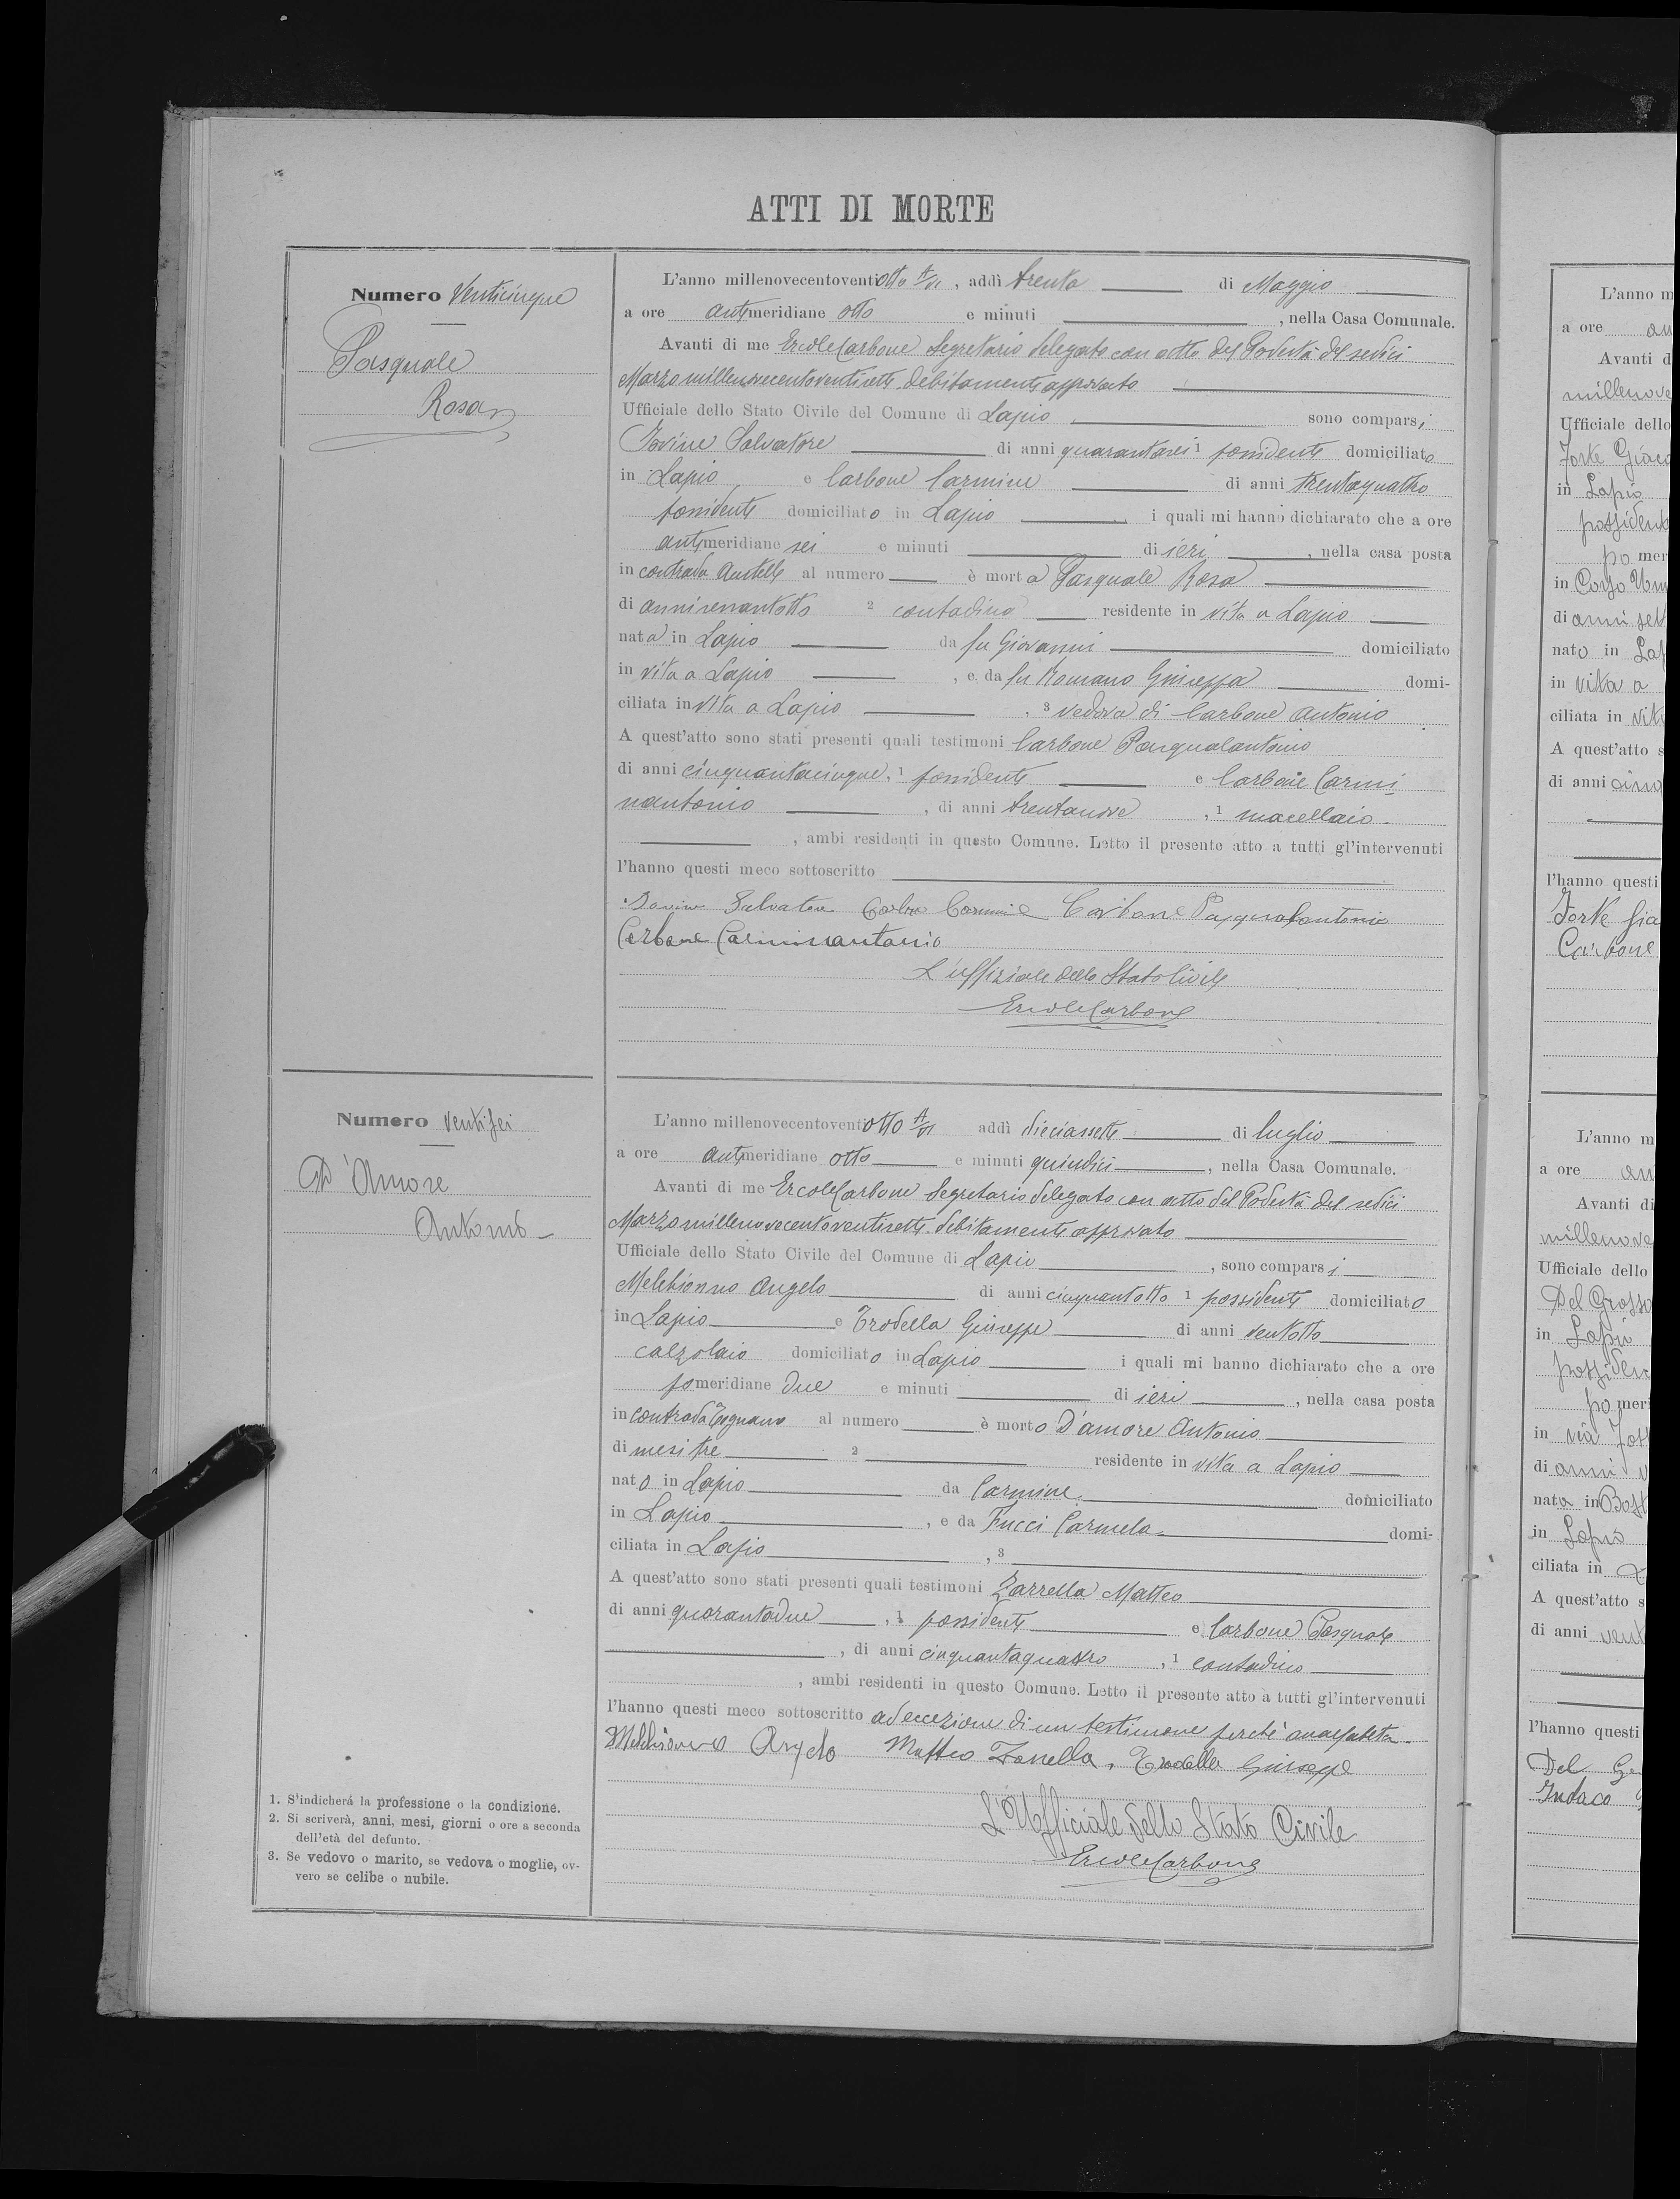 ATTI DI MORTE
Numero Venticinque
Pasquale
Rosa
L'anno millenovecentoventiotto A/VI, addì trenta di Maggio
a ore antimeridiane otto e minuti , nella Casa Comunale.
Avanti di me Ercole Carbone Segretario delegato con atto del Podestà del sedici
Marzo millenovecentoventisette debitamente approvato
Ufficiale dello Stato Civile del Comune di Lapio sono comparsi
Iovine Salvatore di anni quarantasei 1 possidente domiciliato
in Lapio e Carbone Carmine di anni trentaquattro
possidente domiciliato in Lapio i quali mi hanno dichiarato che a ore
antimeridiane sei e minuti di ieri , nella casa posta
in contrada al numero è morta Pasquale Rosa
di anni 2 contadina residente in vita a Lapio
nata in Lapio da fu Giovanni domiciliato
in vita a Lapio , e da fu Romano Giuseppa domi-
ciliata in vita a Lapio , 3 vedova di Carbone Antonio
A quest'atto sono stati presenti quali testimoni Carbone Pasqualantonio
di anni cinquantacinque, 1 possidente e Carbone Carmi
nantonio , di anni trentanove , 1 macellaio.
, ambi residenti in questo Comune. Letto il presente atto a tutti gl'intervenuti
l'hanno questi meco sottoscritto
Iovine Salvatore Carbone Carmine Carbone Pasqualantonio
Carbone Carminantonio
L'uffiziale dello Stato Civile
Ercole Carbone
Numero ventisei
D'Amore
Antonio
L'anno millenovecentoventiotto A/VI addì diciassette di luglio
a ore antimeridiane otto e minuti quindici , nella Casa Comunale.
Avanti di me Ercole Carbone Segretario delegato con atto del Podestà del sedici
Marzo millenovecentoventisette debitamente approvato
Ufficiale dello Stato Civile del Comune di Lapio , sono comparsi
Melchionno Angelo di anni cinquantotto 1 possidente domiciliato
in Lapio e Trodella Giuseppe di anni ventotto
calzolaio domiciliato in Lapio i quali mi hanno dichiarato che a ore
pomeridiane due e minuti di ieri , nella casa posta
in contrada al numero è morto D'amore Antonio
di mesi tre 2 residente in vita a Lapio
nato in Lapio da Carmine domiciliato
in Lapio , e da Fucci Carmela domi-
ciliata in Lapio , 3
A quest'atto sono stati presenti quali testimoni Zarrella Matteo
di anni quarantadue , 1 possidente e Carbone Pasquale
, di anni cinquantaquattro , 1 contadino
, ambi residenti in questo Comune. Letto il presente atto a tutti gl'intervenuti
l'hanno questi meco sottoscritto ad eccezione di un testimone perchè analfabeta.
Melchionno Angelo Matteo Zarrella, Trodella Giuseppe
L'Ufficiale dello Stato Civile
Ercole Carbone
1. S'indicherà la professione o la condizione.
2. Si scriverà, anni, mesi, giorni o ore a seconda
dell'età del defunto.
3. Se vedovo o marito, se vedova o moglie, ov-
vero se celibe o nubile.
L'anno m
a ore an
Avanti d
millenove
Ufficiale dello
Forte Giaco
in Lapio
possident
po mer
in Corso Um
di anni set
nato in Lap
in vita a
ciliata in vit
A quest'atto s
di anni cinq
l'hanno questi
Forte Gia
Carbone
L'anno m
a ore an
Avanti di
millenove
Ufficiale dello
Del Grosso
in Lapio
possiden
po meri
in via
di anni
nata in
in Lapio
ciliata in
A quest'atto s
di anni vent
l'hanno questi
Del G
Indaco